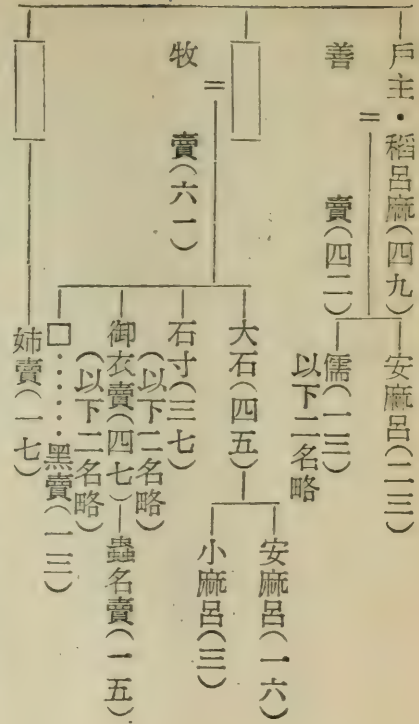 戶主・稻呂麻(四九)
善賣(四二)
安麻呂(二三)
儒(一三)
以下二名略
牧賣(六一)
大石(四五)
安麻呂(一六)
小麻呂(三)
石寸(三七)
(以下二名略)
御衣賣(四七)
蟲名賣(一五)
(以下二名略)
□……黑賣(一三)
姉賣(一七)